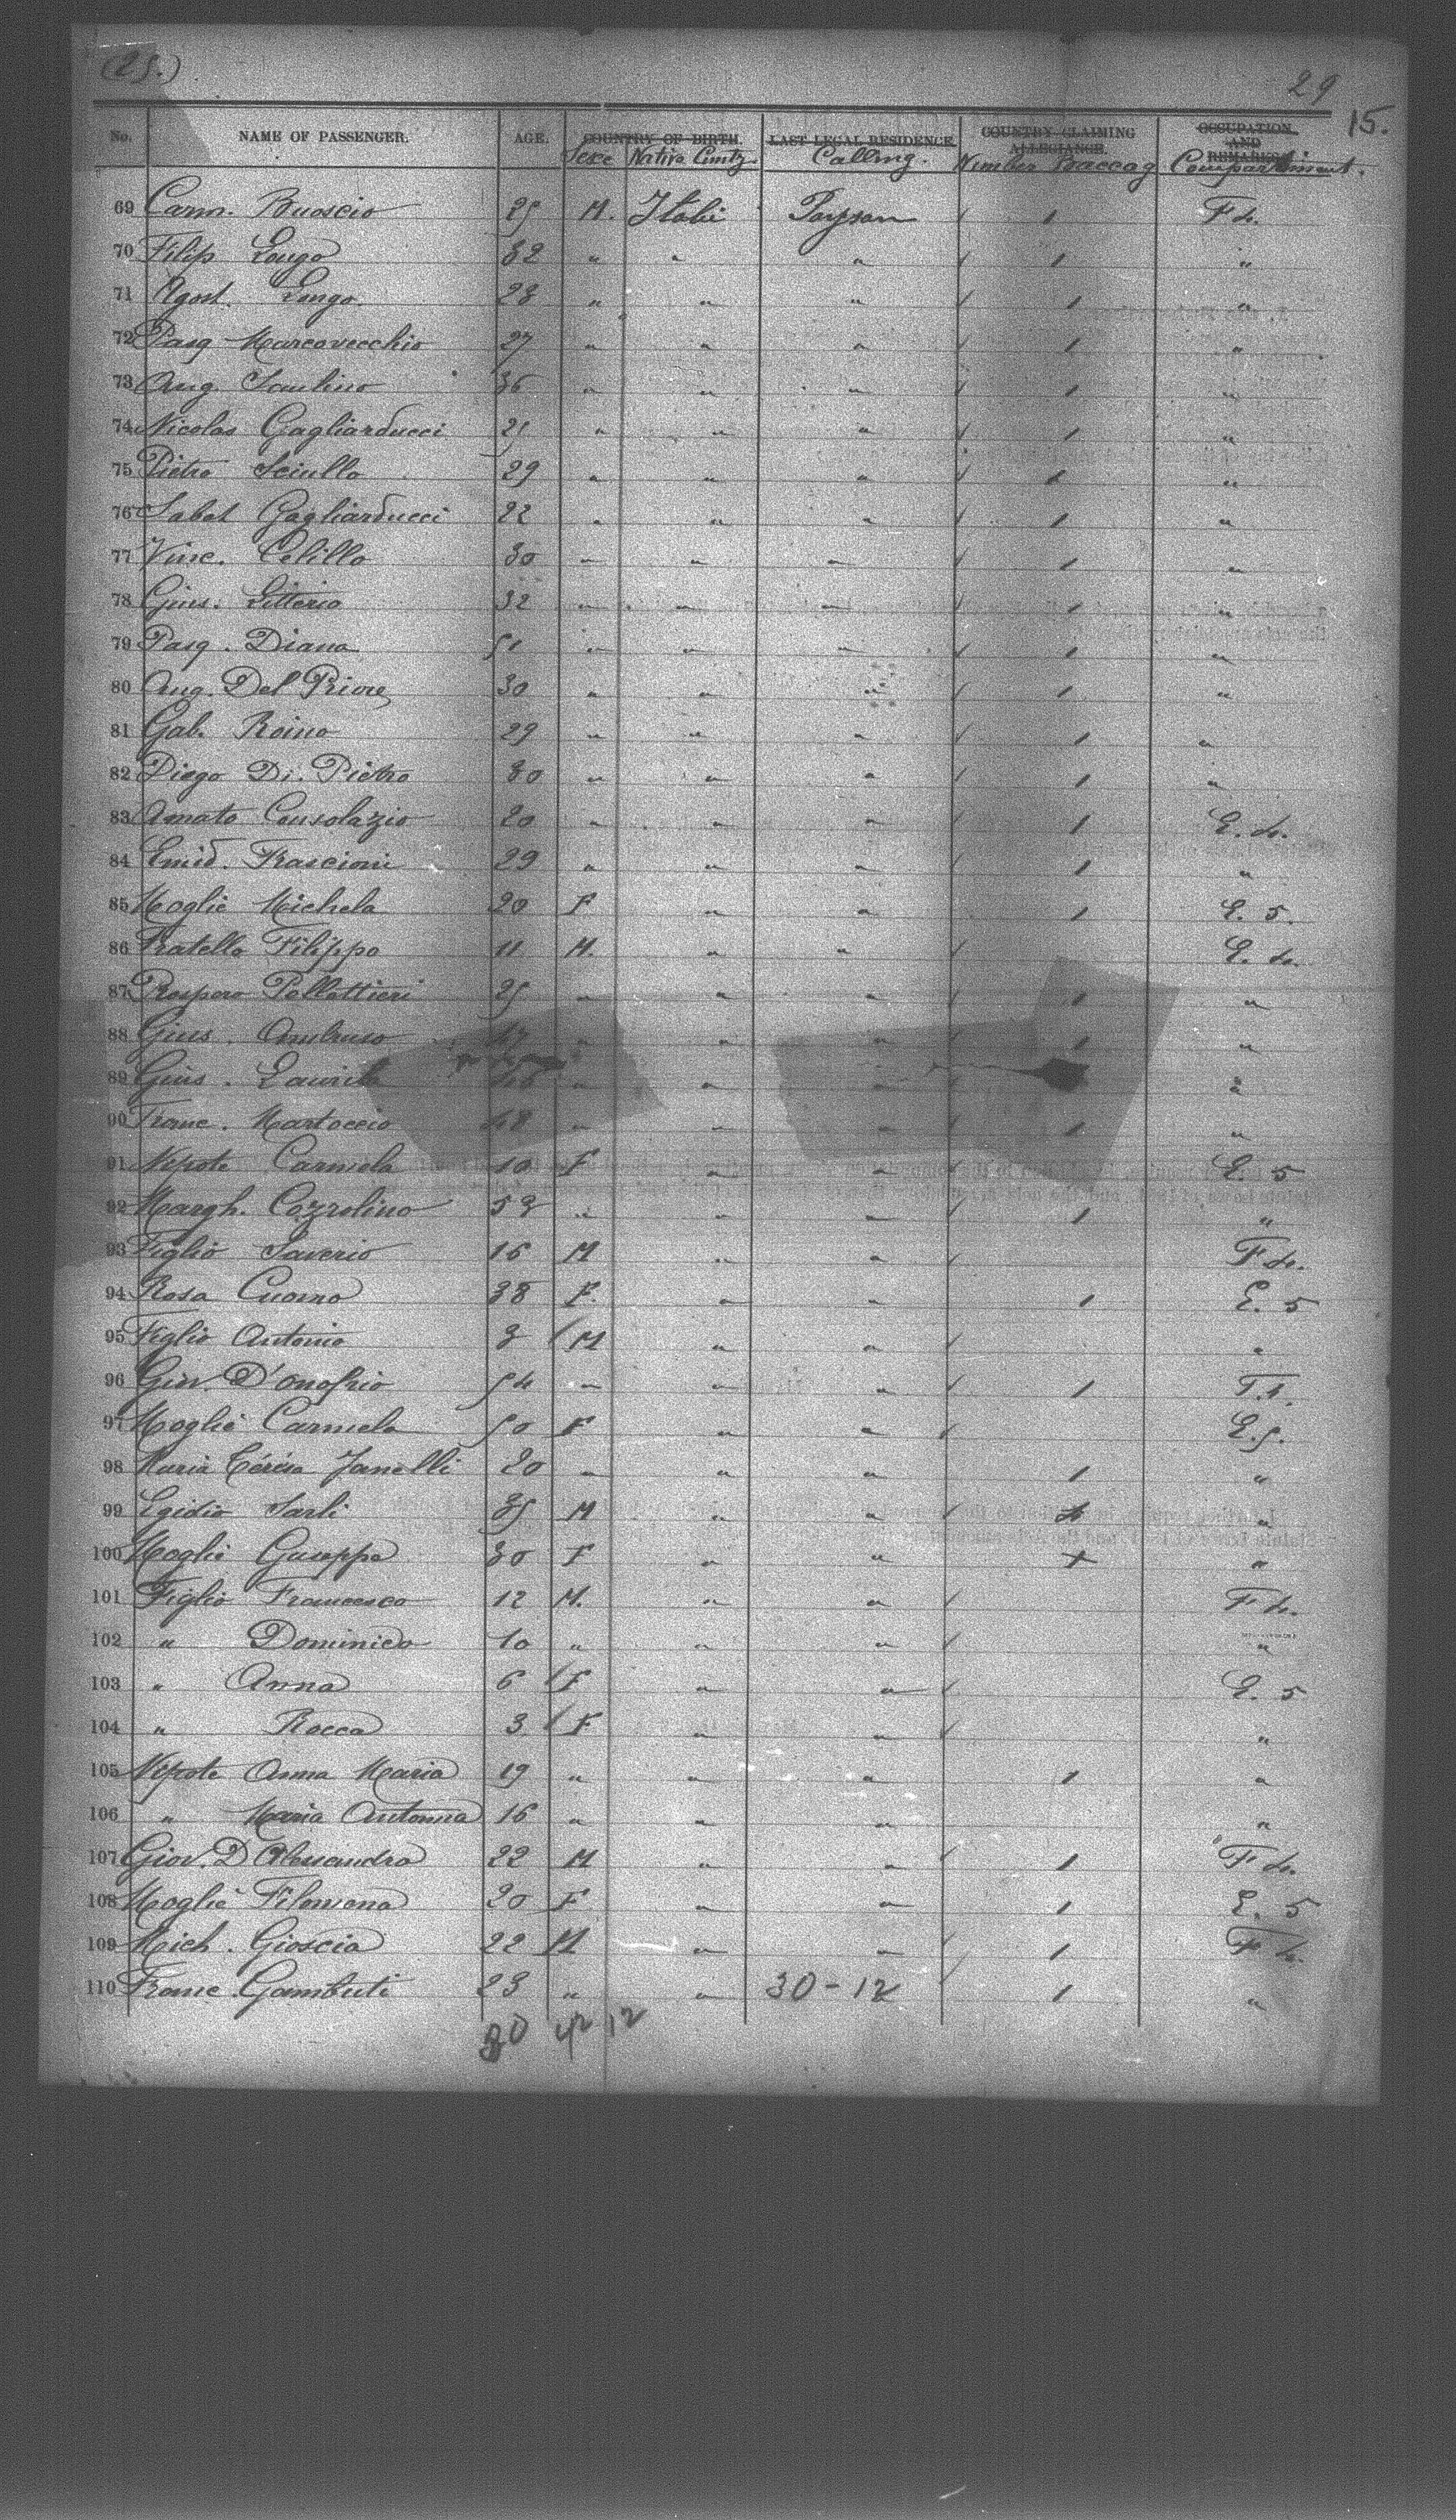 (25.)
29
15.
No. NAME OF PASSENGER. AGE. COUNTRY OF BIRTH. LAST LEGAL RESIDENCE COUNTRY CLAIMING ALLEGIANCE. OCCUPATION AND REMARKS
Sexe Native Cuntz. Calling. Number Baccag Compartiment.
69 Carm. Buoscio 25 M. Italie Paysan 1 F 4.
70 Filip Longo 32 " " " 1 "
71 Agost. Longo 28 " " " 1 "
72 Pasq Marcovecchio 27 " " " 1 "
73 Ang. 36 " " " 1 "
74 Nicolas Gagliarducci 21 " " " 1 "
75 Pietro Sciullo 29 " " " 1 "
76 Sabat Gagliarducci 22 " " " 1 "
77 Vinc. Celillo 30 " " " 1 "
78 Gius. Litterio 32 " " " 1 "
79 Pasq. Diana 51 " " " 1 "
80 Ang. Del Priore 30 " " " 1 "
81 Gab. Roino 29 " " " 1 "
82 Diego Di. Pietro 30 " " " 1 "
83 Amato Consolazio 20 " " " 1 E. 4.
84 Emid. Frascioni 29 " " " 1 "
85 Moglie Michela 20 F " " 1 E. 5.
86 Fratello Filippo 11 M. " " E. 4.
87 Prospero Pellettieri 25 " " " 1 "
88 Gius. Ambruso 47 " " " 1 "
89 Gius. " " " "
90 Franc. Martoccio 48 " " " 1 "
91 Nipote Carmela 10 F " " E. 5
92 Margh. Cozzolino 53 " " " 1 "
93 Figlio Saverio 16 M " " F 4.
94 Rosa Cuomo 38 F. " " 1 E. 5
95 Figlio Antonio 3 M " " "
96 Giov. D'onofrio 54 " " " 1 F. 4.
97 Moglie Carmela 50 F " " E. 5.
98 Maria Térésa Janelli 20 " " " 1 "
99 Egidio Sarli 35 M " " "
100 Moglie Guseppa 30 F " " "
101 Figlio Francesco 12 M. " " F 4.
102 " Dominico 10 " " " "
103 " Anna 6 F " " E. 5
104 " Rocca 3 F " " "
105 Nipote Anna Maria 19 " " " 1 "
106 " Maria Antonna 16 " " " "
107 Giov. D'Alessandro 22 M " " 1 F 4.
108 Moglie Filomena 20 F " " 1 E. 5
109 Mich. Gioscia 22 M " " 1 F 4.
110 Franc. Gambuti 23 " " 30-12 1 "
30 42 12